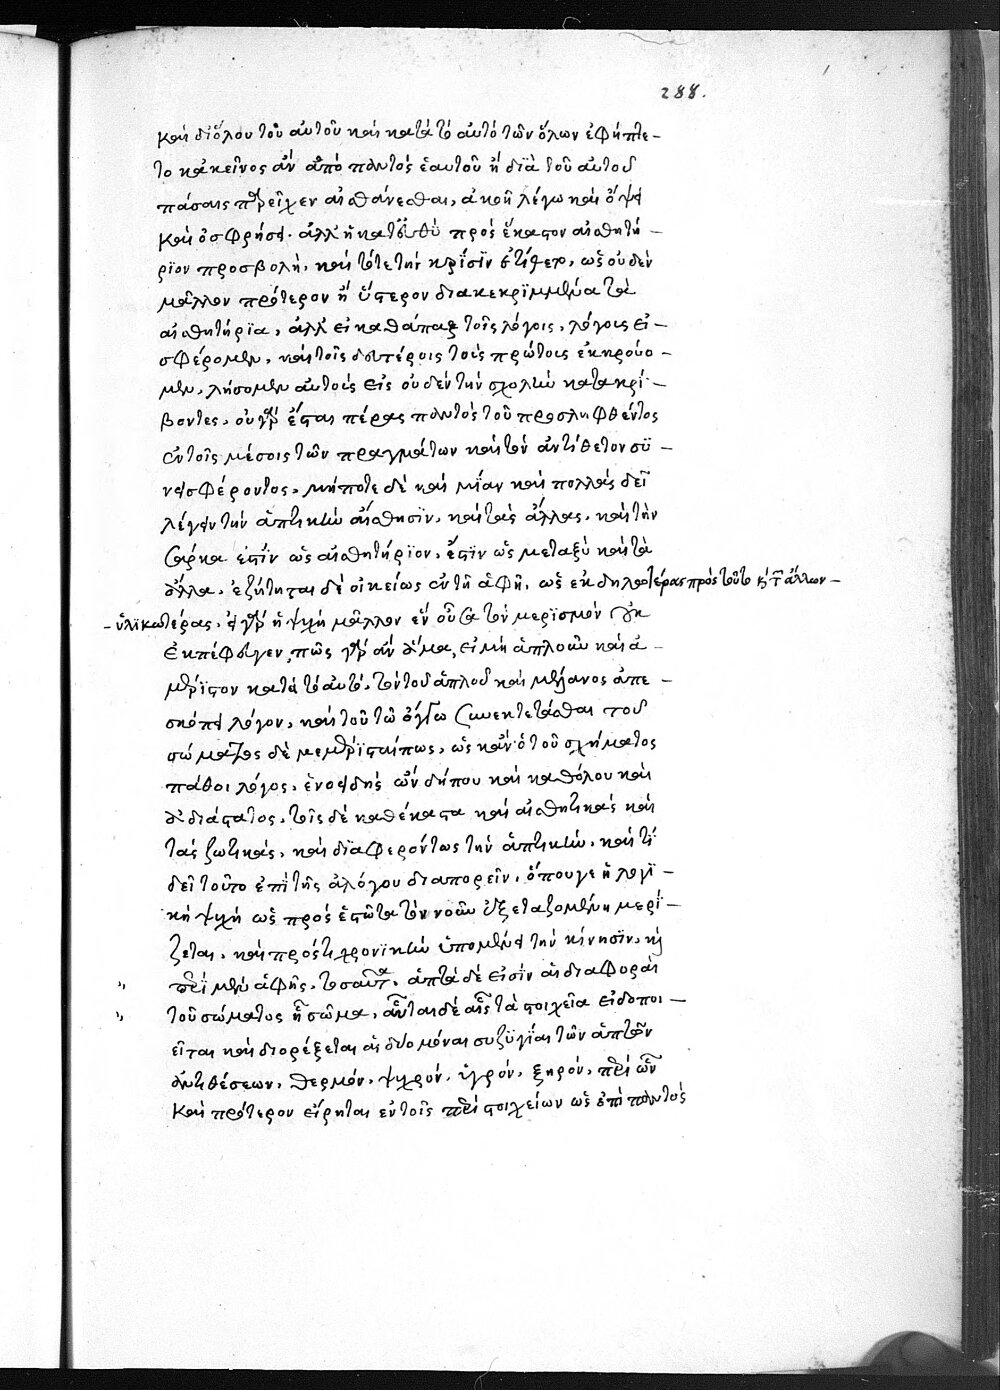 288.
καὶ διόλου τοῦ αὐτοῦ καὶ κατὰ τὸ αὐτὸ τῶν ὅλων ἐφήπτε-
το κἀκεῖνος ἂν ἀπὸ παντὸς ἑαυτοῦ ἢ διὰ τοῦ αὐτοῦ
πάσαις παρεῖχεν αἰσθάνεσθαι, ἀκοῇ λέγω καὶ ὄψει
καὶ ὀσφρήσει. ἀλλ' ἡ κατευθὺ πρὸς ἕκαστον αἰσθητή-
ριον προσβολὴ, καὶ τότε τὴν κρίσιν ἐπίφερ, ὡς οὐδὲν
μᾶλλον πρότερον ἢ ὕστερον διακεκριμμένα τὰ
αἰσθητήρια, ἀλλ' εἰ καθάπαξ τοῖς λόγοις, λόγους εἰ-
σφέρομεν, καὶ τοῖς δευτέροις τοὺς πρώτους ἐκκρούο-
μεν, λήσομεν αὐτοὺς εἰς οὐδὲν τὴν σχολὴν κατατρί-
βοντες, οὐ γὰρ ἔσται πέρας παντὸς τοῦ προσληφθέντος
ἐν τοῖς μέσοις τῶν πραγμάτων καὶ τὸν ἀντίθετον συ-
νεισφέροντος, μήποτε δὲ καὶ μίαν καὶ πολλὰς δεῖ
λέγειν τὴν ἁπτικὴν αἴσθησιν, καὶ τὰς ἄλλας, καὶ τὴν
σάρκα ἐστὶν ὡς αἰσθητήριον, ἔστιν ὡς μεταξὺ καὶ τὰ
ἄλλα. ἐζήτηται δὲ οἰκείως ἐν τῇ ἁφῇ, ὡς ἐκδηλοτέρας πρὸς τοῦτο κ τ ἄλλων-
-ὑλικωτέρας. εἰ γὰρ ἡ ψυχὴ μᾶλλον ἓν οὖσα τὸν μερισμὸν οὐκ
ἐκπέφευγεν, πῶς γὰρ ἂν ἅμα, εἰ μὴ ἁπλοῦν καὶ ἀ-
μέριστον κατὰ τὸ αὐτὸ, τὸν τοῦ ἁπλοῦ καὶ μένοντος ἀπε-
σκόπει λόγον, καὶ τοῦ τῷ ὄγκῳ συνεκτετάσθαι τοῦ
σώματος δὲ μεμερίσται πως, ὡς κἂν ὁ τοῦ σχήματος
πάθοι λόγος, ἑνοειδὴς ὢν δήπου καὶ καθόλου καὶ
ἀδιάστατος, τοῖς δὲ καθέκαστα καὶ αἰσθητικὰς καὶ
τὰς ζωτικὰς, καὶ διαφερόντως τὴν ἁπτικὴν, καὶ τί
δεῖ τοῦτο ἐπὶ τῆς ἀλόγου διαπορεῖν, ὅπου γε ἡ λογι-
κὴ ψυχὴ ὡς πρὸς ἐν τὸν νοῦν ἐξεταζομένη μερί-
ζεται, καὶ πρὸς τι χρονικὴν ὑπομένει τὴν κίνησιν, κ
περὶ μὲν ἁφῆς, τοσαῦτα, ἁπταὶ δέ εἰσιν αἱ διαφοραὶ
τοῦ σώματος ᾗ σῶμα, αὗται δὲ αἷς τὰ στοιχεῖα εἰδοποι-
εῖται καὶ διορέξεται αἱ δύο μόναι συζυγίαι τῶν ἁπτῶν
ἀντιθέσεων, θερμὸν, ψυχρὸν, ὑγρὸν, ξηρὸν, περὶ ὧν
καὶ πρότερον εἴρηται ἐν τοῖς περὶ στοιχείων ὡς ἐπὶ παντὸς